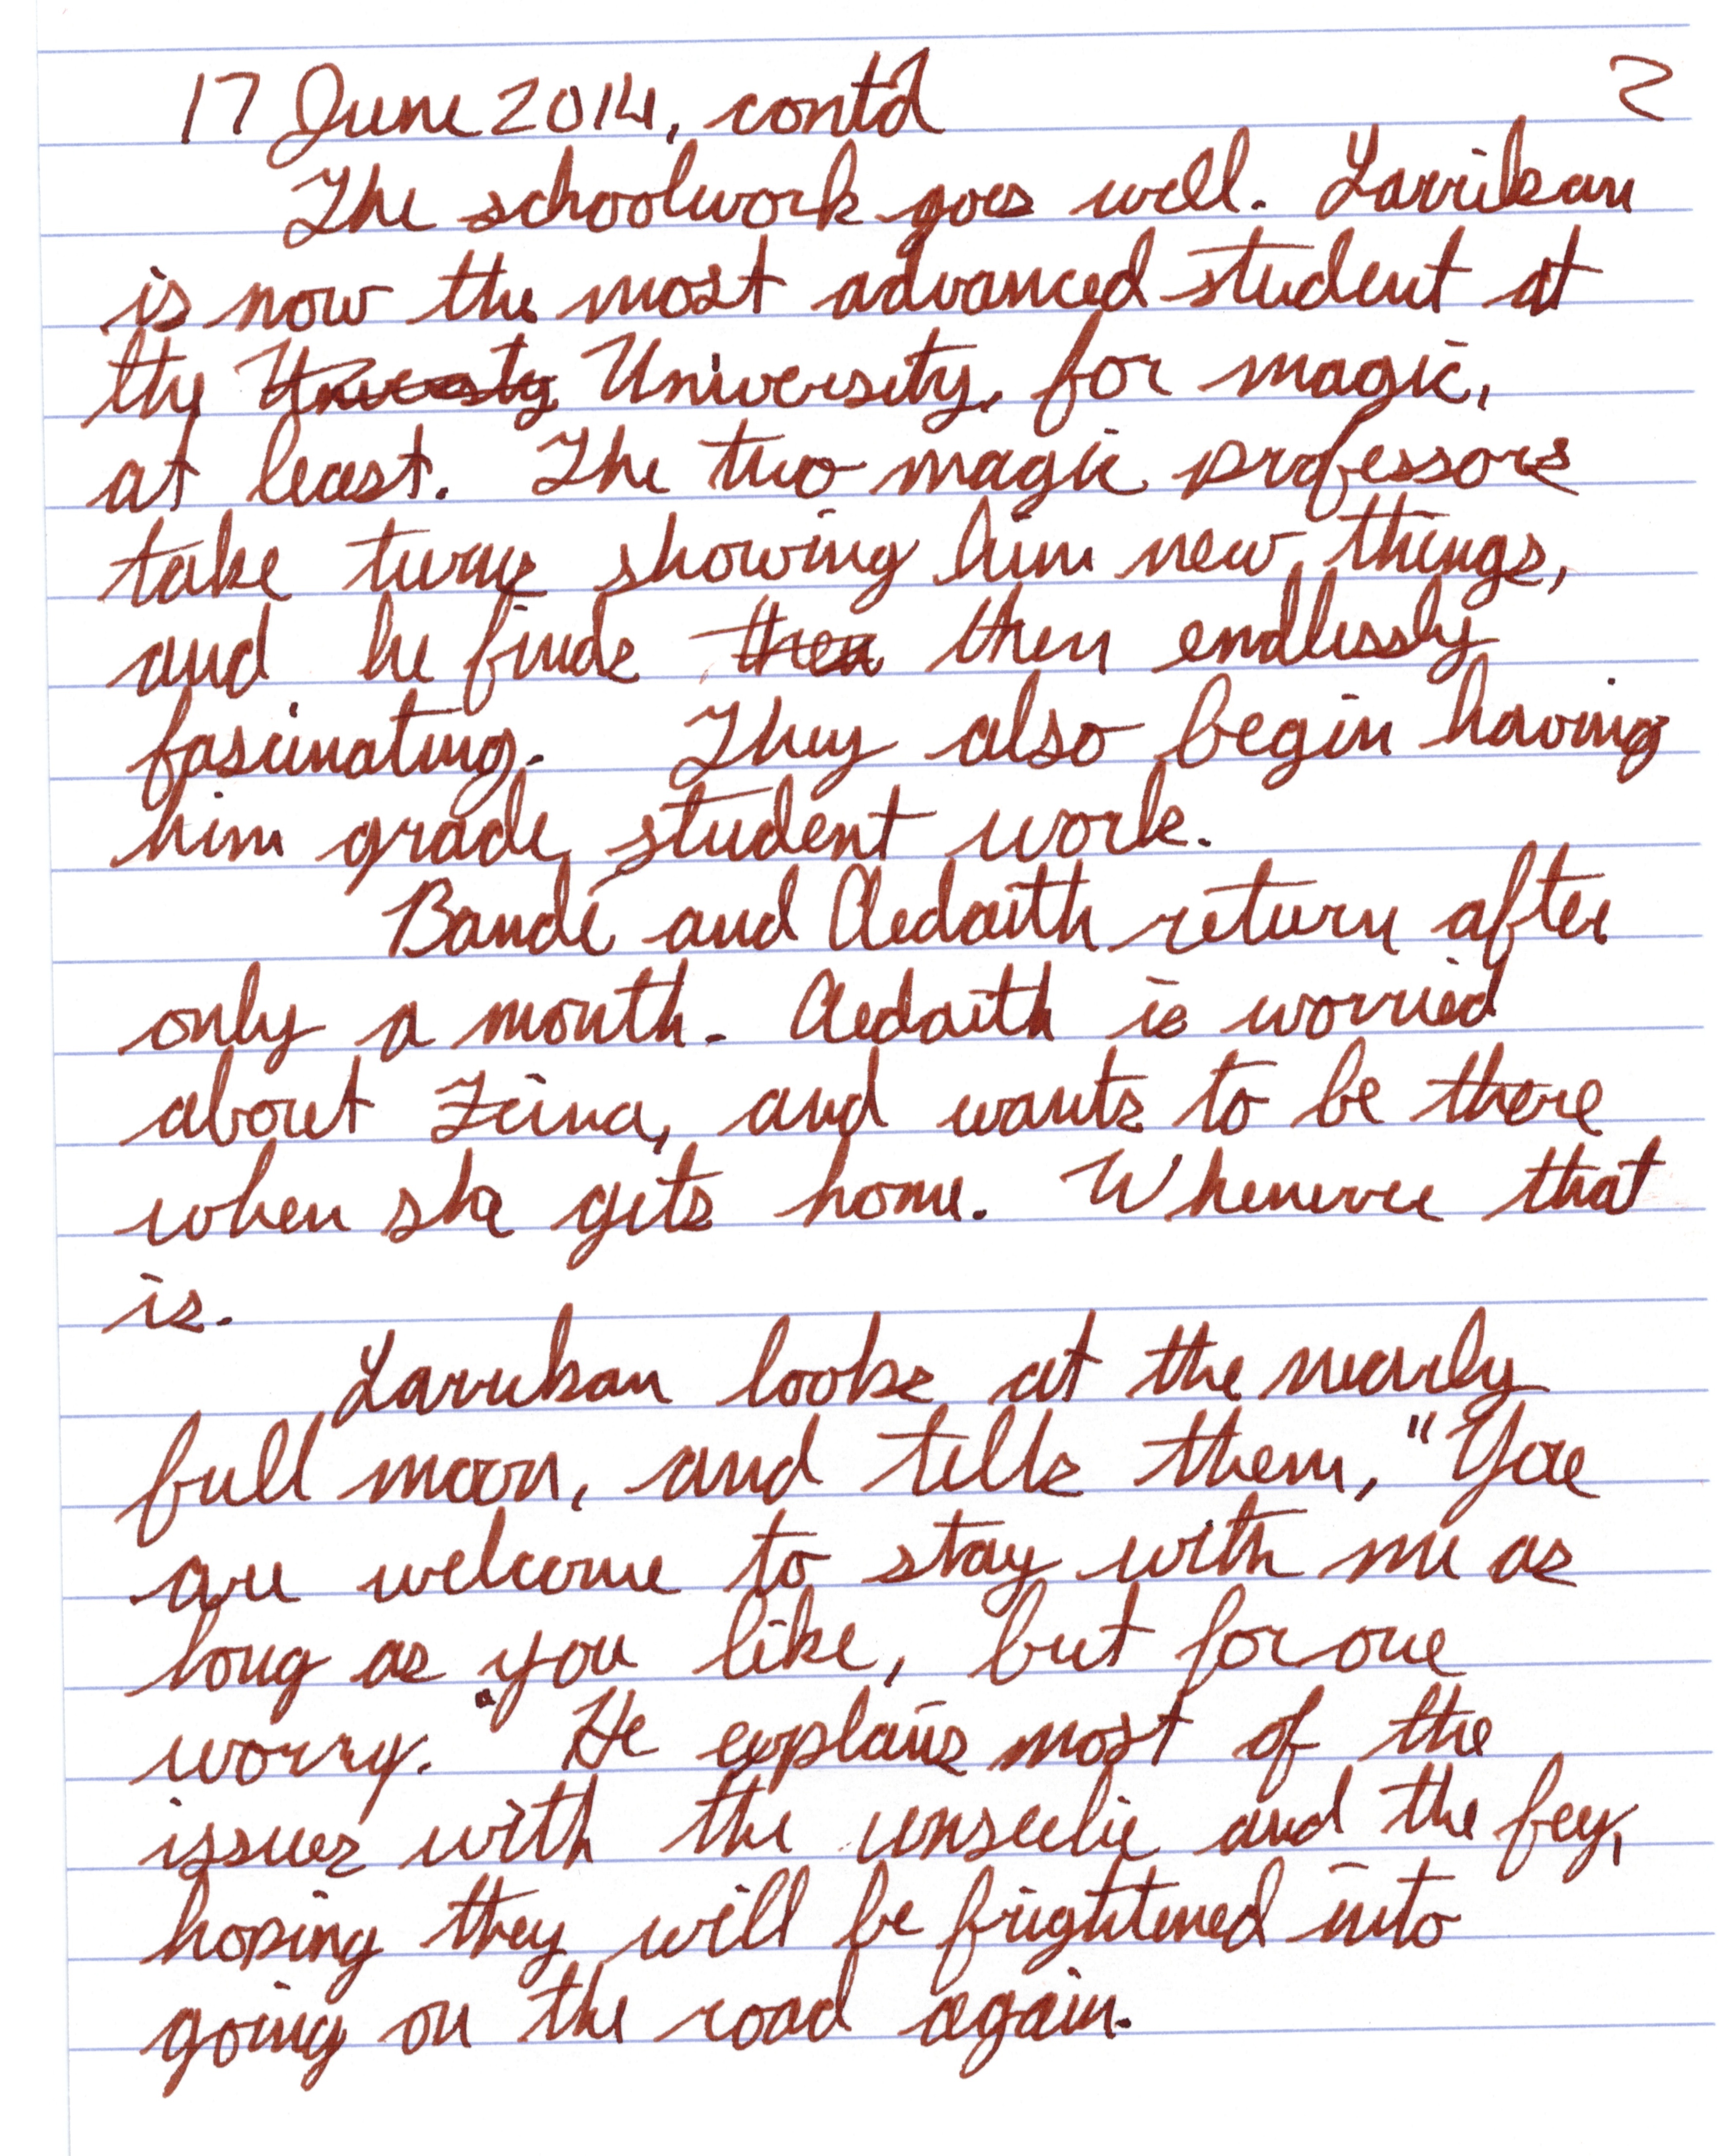 17 June 2014, contd 2
The schoolwork goes well. Larrikan
is now the most advanced student at
the University, for magic,
at least. The two magic professors
take turns showing him new things,
and he finds then then endlessly
fascinating. They also begin having
him grade student work.
Bandi and Aedaith return after
only a month. Aedaith is worried
about Zina, and wants to be there
when she gets home. Whenever that
is.
Larrikan looks at the nearly
full moon, and tells them, "You
are welcome to stay with me as
long as you like, but for one
worry." He explains most of the
issues with the unseelie and the fey,
hoping they will be frightened into
going on the road again.